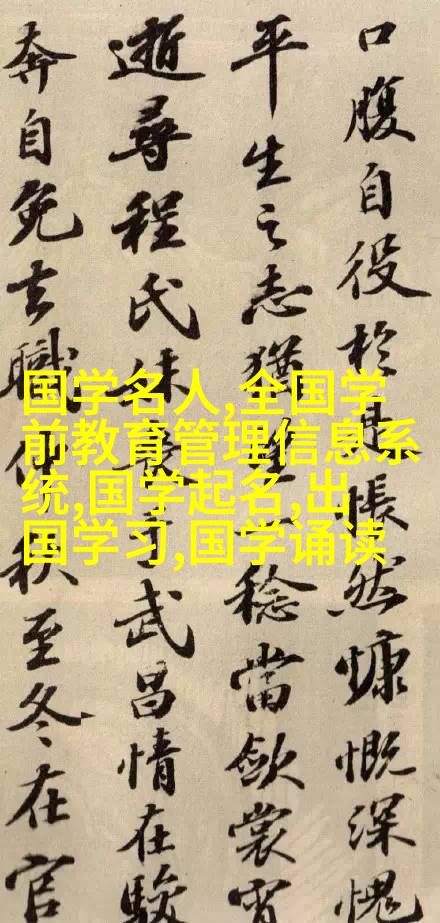 口腹自役於是悵然慷慨深愧
平生之志猶望一稔當斂裳宵
逝尋程氏妹喪于武昌情在駿
奔自免去職仲秋至冬在官
国学名人,全国学
前教育管理信息系
统,国学起名,出
国学习,国学诵读